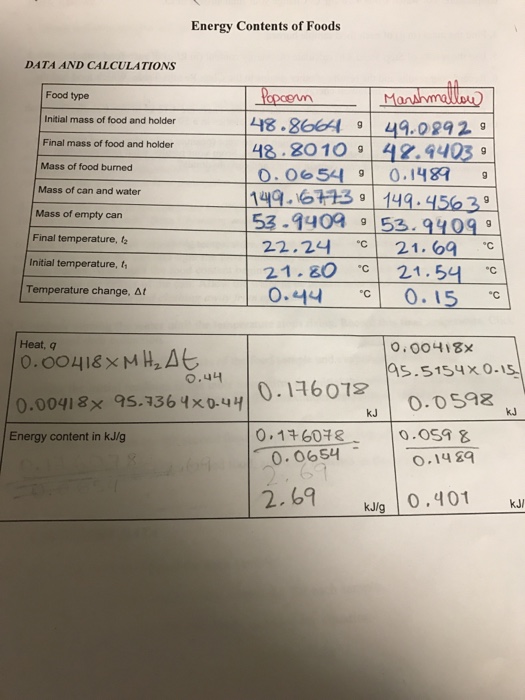 Energy Contents of Foods
DATA AND CALCULATIONS
Food type Popcorn Marshmallow
Initial mass of food and holder 48.8664 g 49.0892 g
Final mass of food and holder 48.8010 g 48.9403 g
Mass of food burned 0.0654 g 0.1489 g
Mass of can and water 149.6773 g 149.4563 g
Mass of empty can 53.9409 g 53.9409 g
Final temperature, t2 22.24 °C 21.69 °C
Initial temperature, t1 21.80 °C 21.54 °C
Temperature change, Δt 0.44 °C 0.15 °C
Heat, q 0.00418x
0.00418 x MH2 Δt 95.5154x0.15
0.44
0.00418x 95.7364x0.44 0.176078 kJ 0.0598 kJ
Energy content in kJ/g 0.176078 = 0.0598
0.0654 0.1489
2.69
2.69 kJ/g 0.401 kJ/